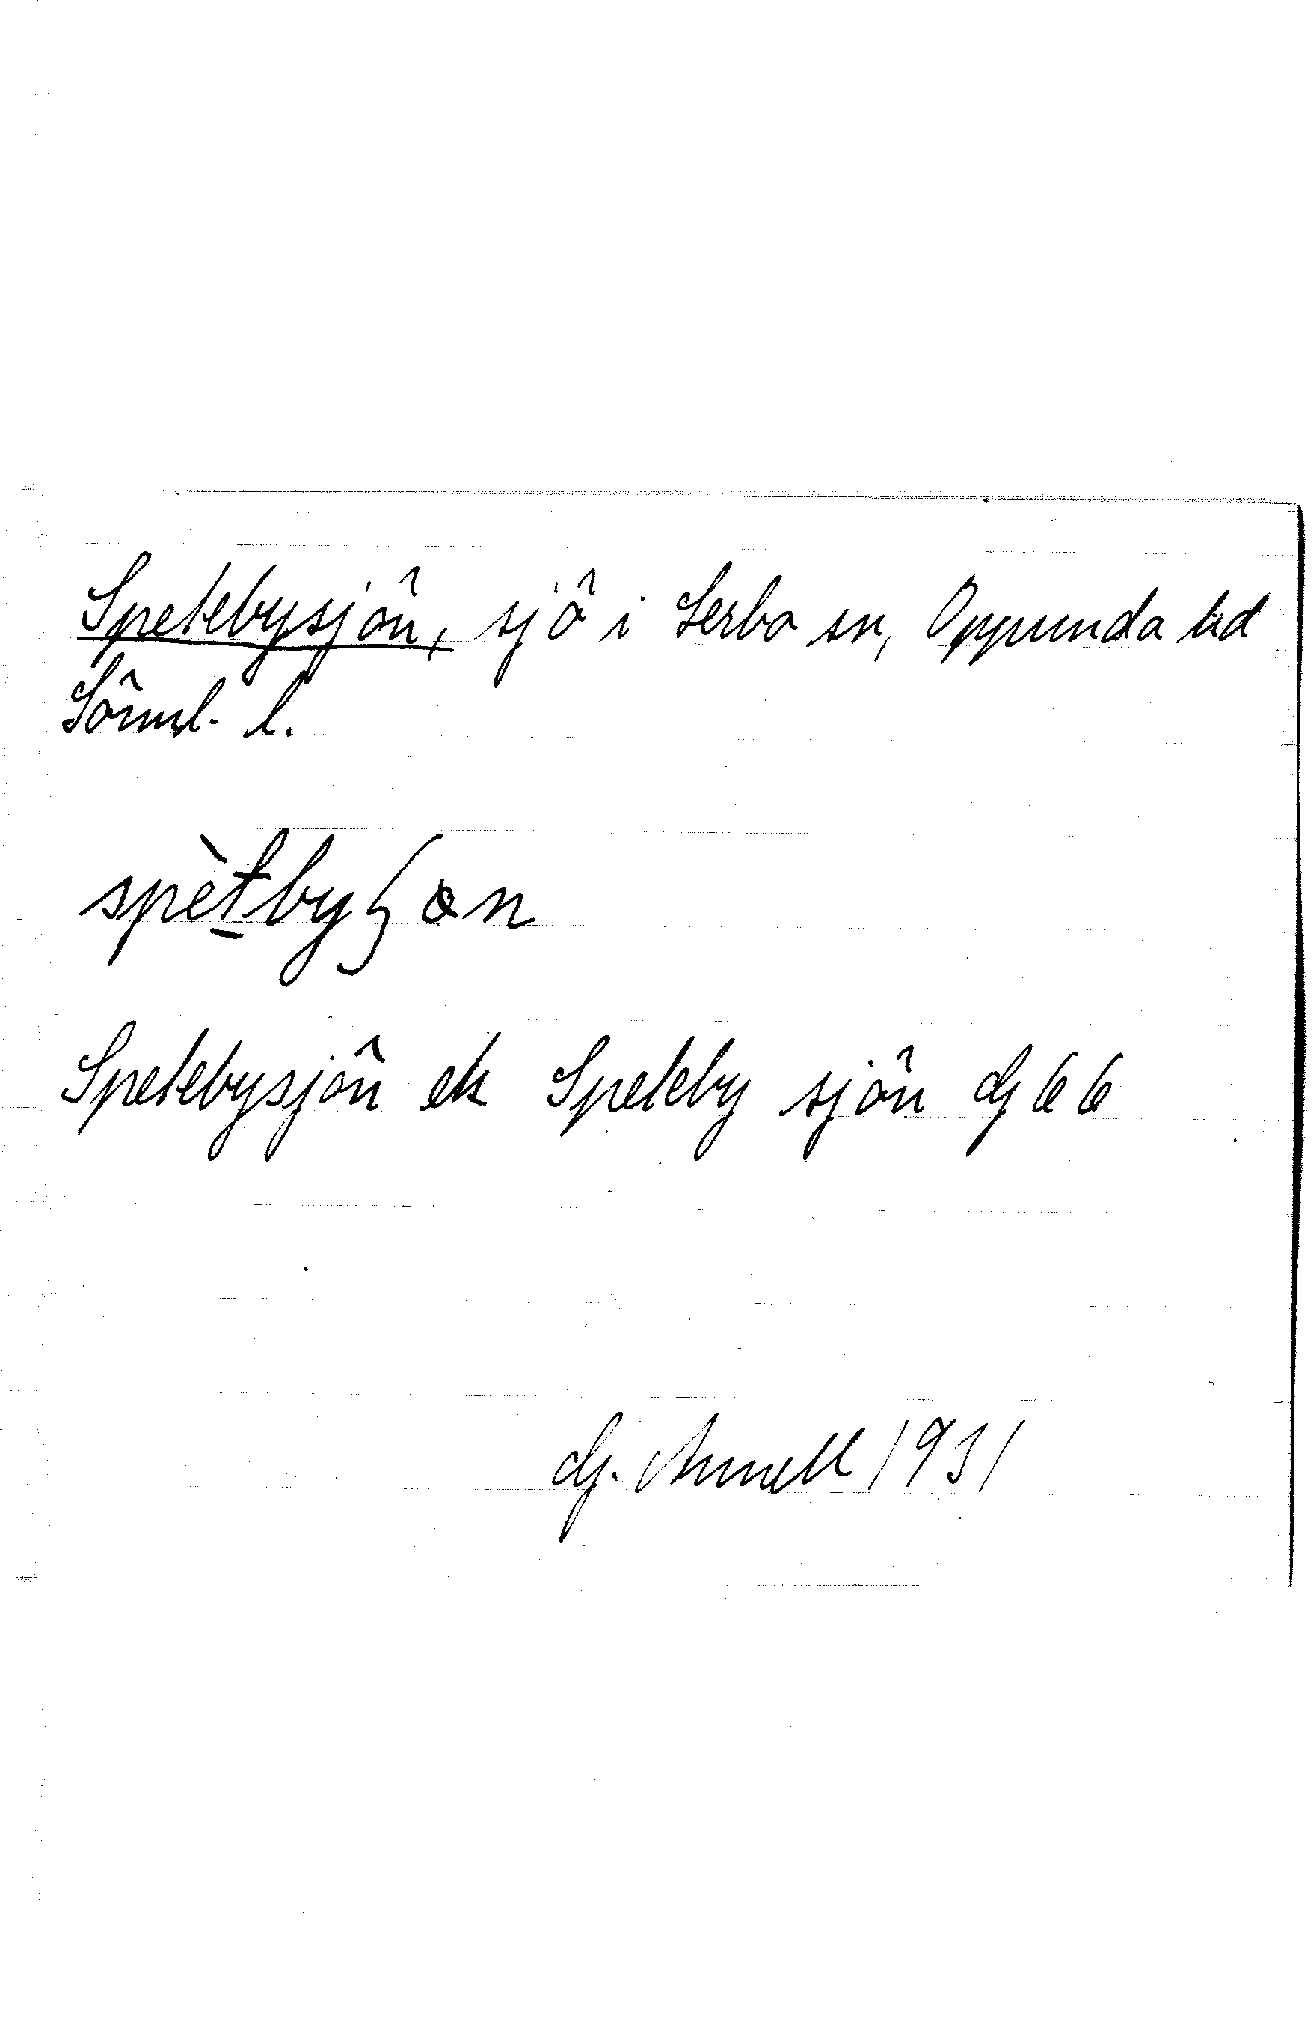 Spetebysjön, sjö i Lerbo sn, Oppunda hd
Sörml. l.
Spetebysjön ek Speteby sjön G 66
G. Annell 1931